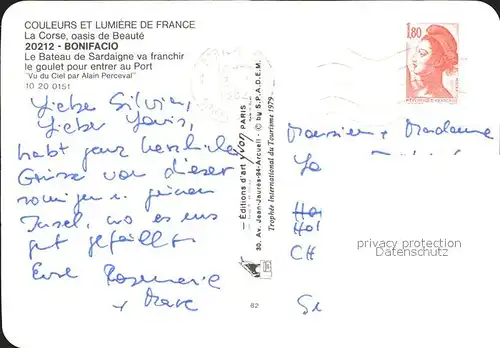 COULEURS ET LUMIÈRE DE FRANCE
La Corse, oasis de Beauté
20212 - BONIFACIO
Le Bateau de Sardaigne va franchir
le goulet pour entrer au Port
"Vu du Ciel par Alain Perceval"
10 20 0151
1,80
Lieber Silvin,
Liebe Yavis,
habt ganz herzliche
Grüsse von dieser
sonnigen u. grünen
Insel, wo es uns
gut gefällt
Eure Rosmarie
+ Marc
Editions d'art yvon PARIS
30, Av. Jean-Jaurès-94-Arcueil - © by S.P.A.D.E.M.
Trophée International du Tourisme 1979
82
Monsieur + Madame
CH
privacy protection
Datenschutz